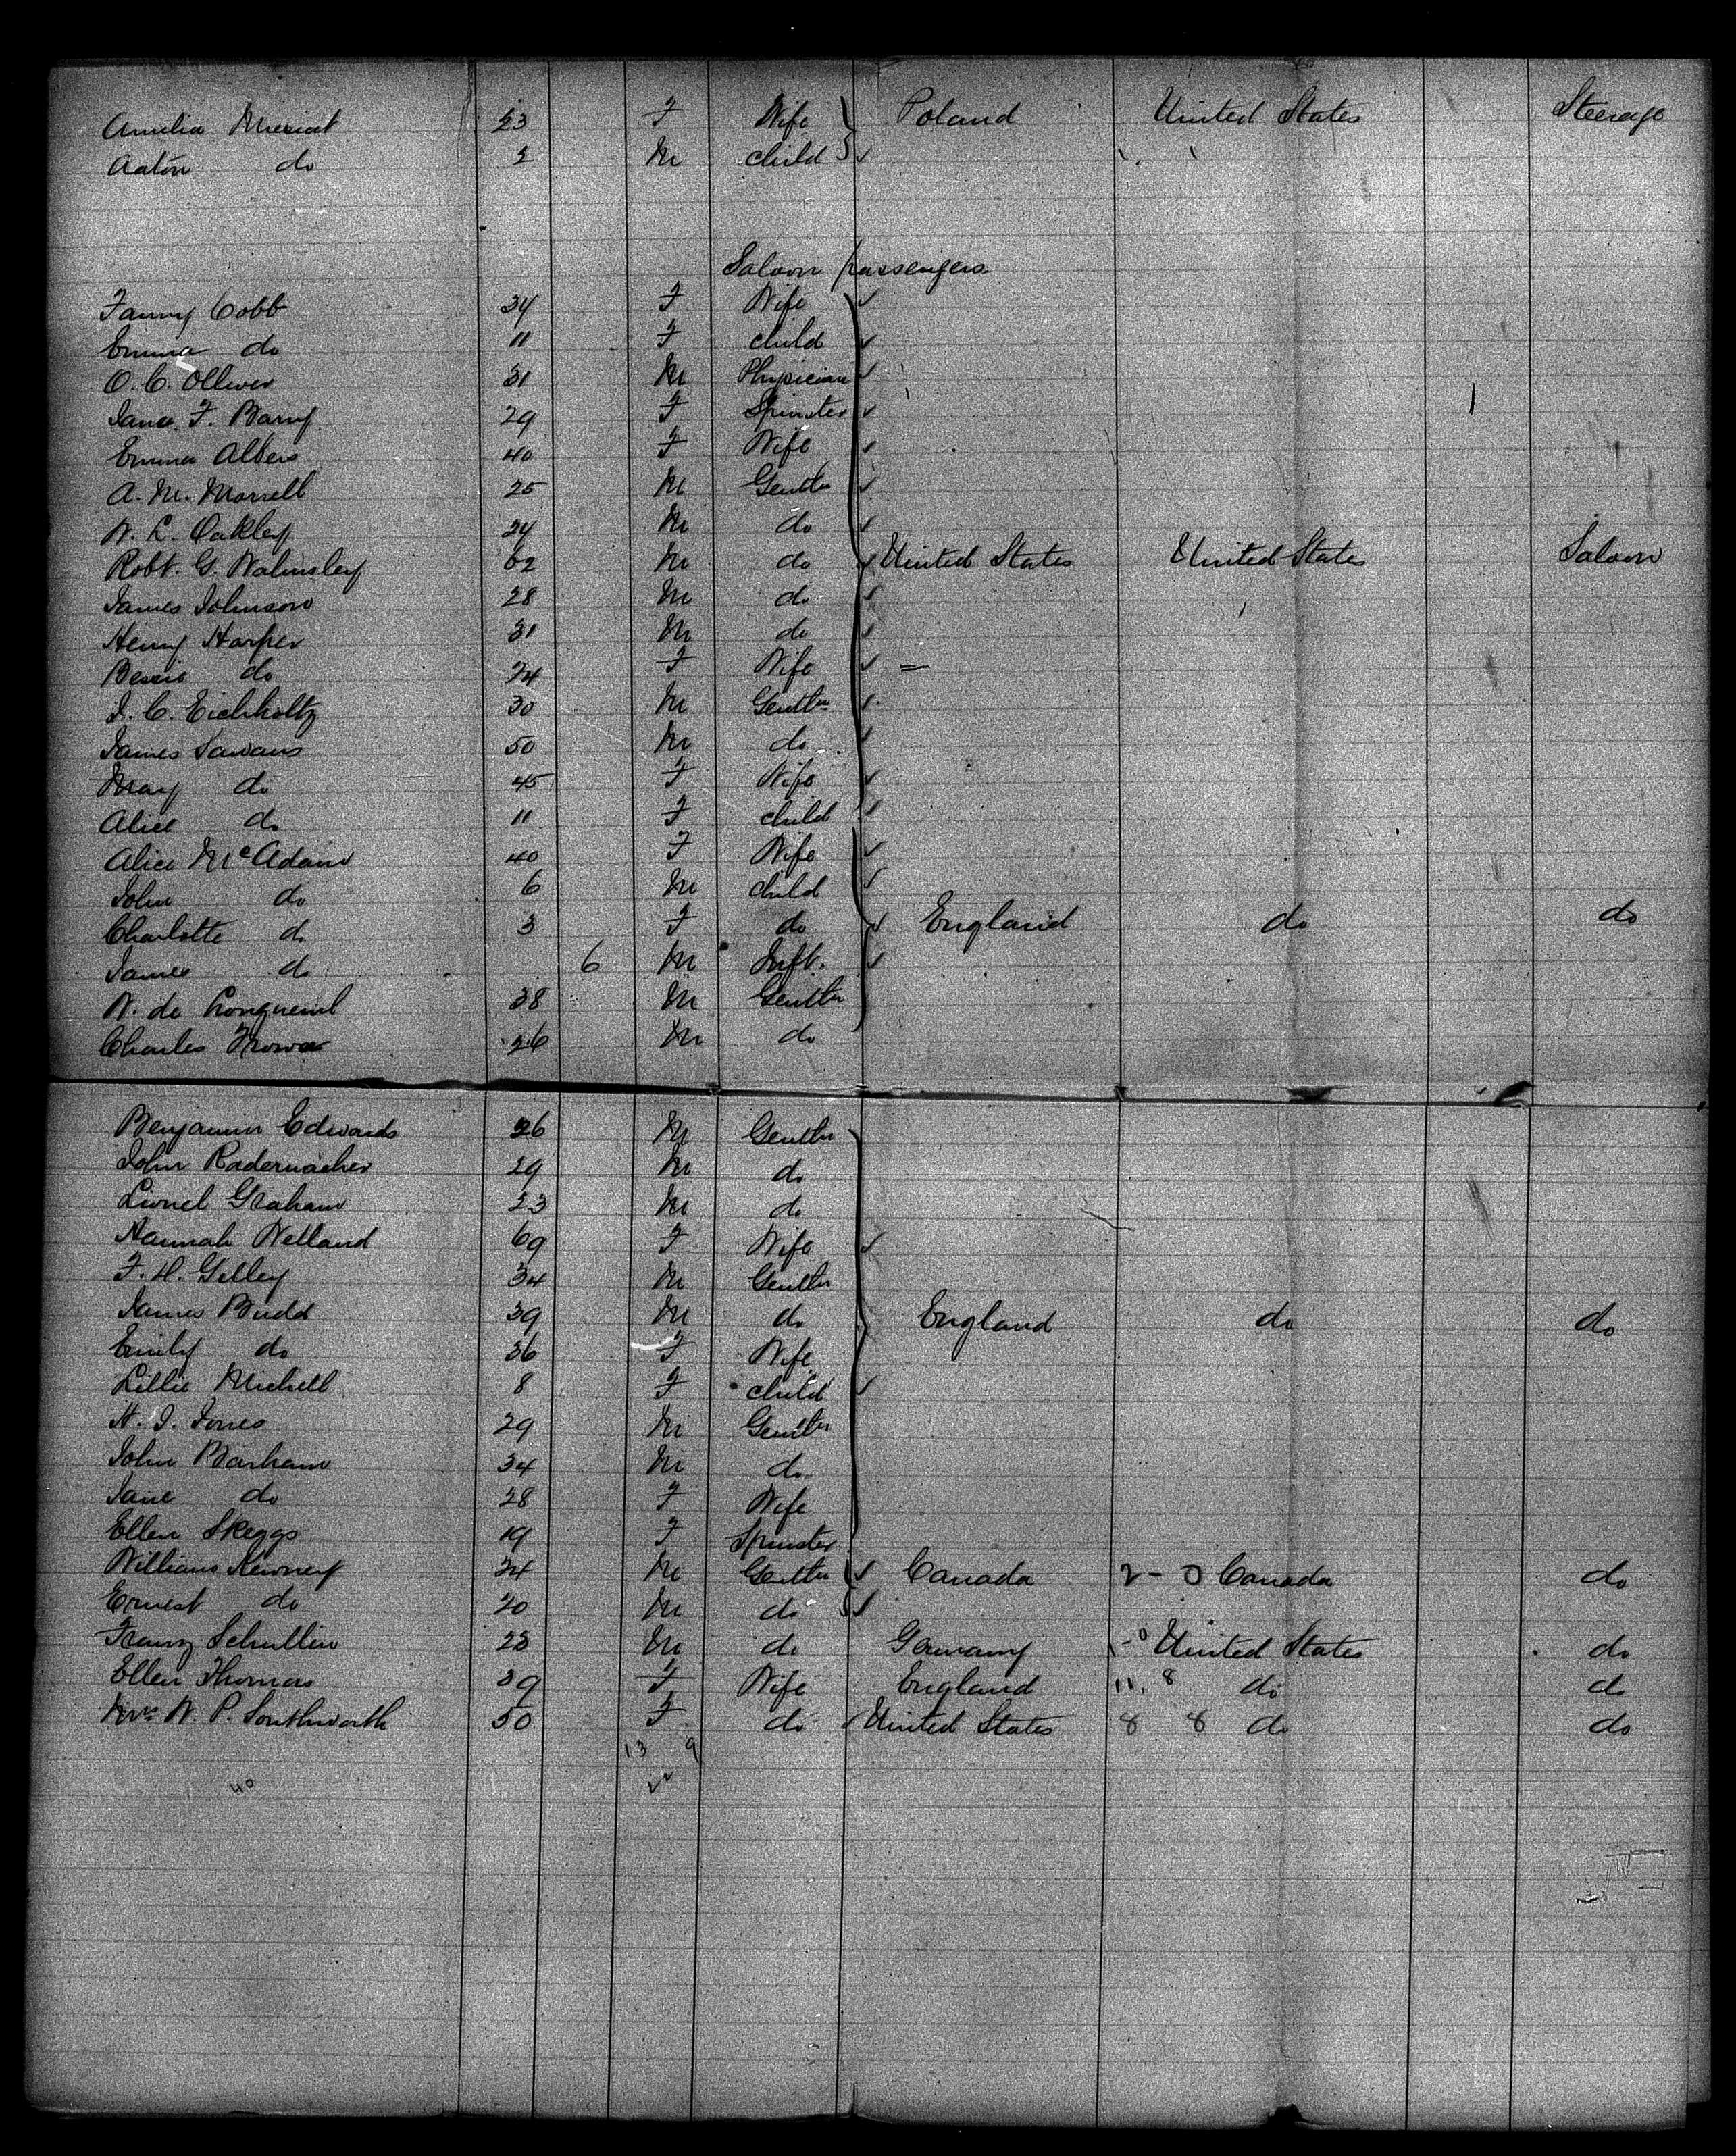 Amelia Mieziat 23 F Wife Poland United States Steerage
Anton do 2 M child
Saloon passengers
Fanny Cobb 34 F Wife
Emma do 11 F child
O. C. Olliver 31 M Physician
Jane F. Barry 29 F Spinster
Emma Albers 40 F Wife
A. M. Morrell 25 M Gentln
W. L. Oakley 24 M do
Robt. G. Walmsley 62 M do United States United States Saloon
James Johnson 28 M do
Henry Harper 31 M do
Bessie do 24 F Wife
J. C. Eichholtz 30 M Gentln
James 50 M do
Mary do 45 F Wife
Alice do 11 F child
Alice McAdam 40 F Wife
John do 6 M child
Charlotte do 3 F do England do do
James do 6 M Inft.
W. de Longueuil 38 M Gentln
Charles 26 M do
Benjamin Edwards 26 M Gentln
John Radermacher 29 M do
Lionel Graham 23 M do
Hannah Welland 69 F Wife
F. H. Gilley 34 M Gentln
James Budd 39 M do England do do
Emily do 36 F Wife
Lillie Michell 8 F child
H. J. Jones 29 M Gentln
John Barham 34 M do
Jane do 28 F Wife
Ellen Skeggs 19 F Spinster
William 24 M Gentln Canada 2 - 0 Canada do
Ernest do 20 M do
Franz Schullin 23 M do Germany 1 - 0 United States do
Ellen Thomas 39 F Wife England 11. 8 do do
Mrs W. P. Southworth 50 F do United States 8 8 do do
13 9
40